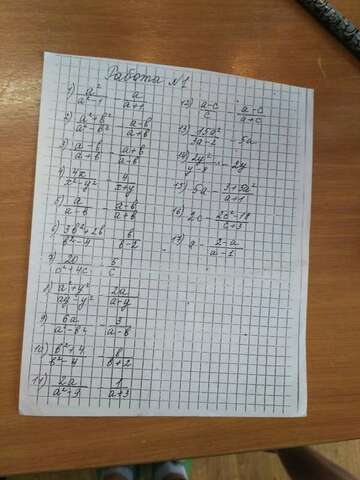 Работа №1
1) a²/(a²-1) - a/(a+1)
2) (a²+b²)/(a²-b²) - (a-b)/(a+b)
3) (a-b)/(a+b) - (a+b)/(a-b)
4) 4x/(x²-y²) - 4/(x+y)
5) a/(a-b) - (a-b)/(a+b)
6) (3b²+2b)/(b²-4) - b/(b-2)
7) 20/(c²+4c) - 5/c
8) (a²+y²)/(ay-y²) - 2a/(a-y)
9) 6a/(a²-b²) - 3/(a-b)
10) (b²+4)/(b²-4) - b/(b+2)
11) 2a/(a²+9) - 1/(a+3)
12) (a-c)/c - (a-c)/(a+c)
13) 15a²/(3a-2) - 5a
14) 2y²/(y-8) - 2y
15) 5a - (3+5a²)/(a+1)
16) 2c - (2c²-18)/(c+3)
17) a - (2-a)/(a-1)